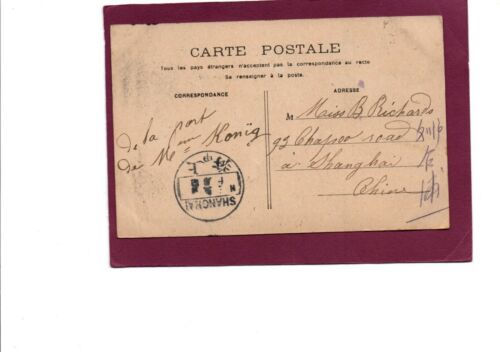 CARTE POSTALE
Tous les pays étrangers n'acceptent pas la correspondance au recto
Se renseigner à la poste.
CORRESPONDANCE
ADRESSE
de la part
de Mme Konig
M Miss B. Richards
92 Chapoo road
à Shanghai
Chine
SHANGHAI